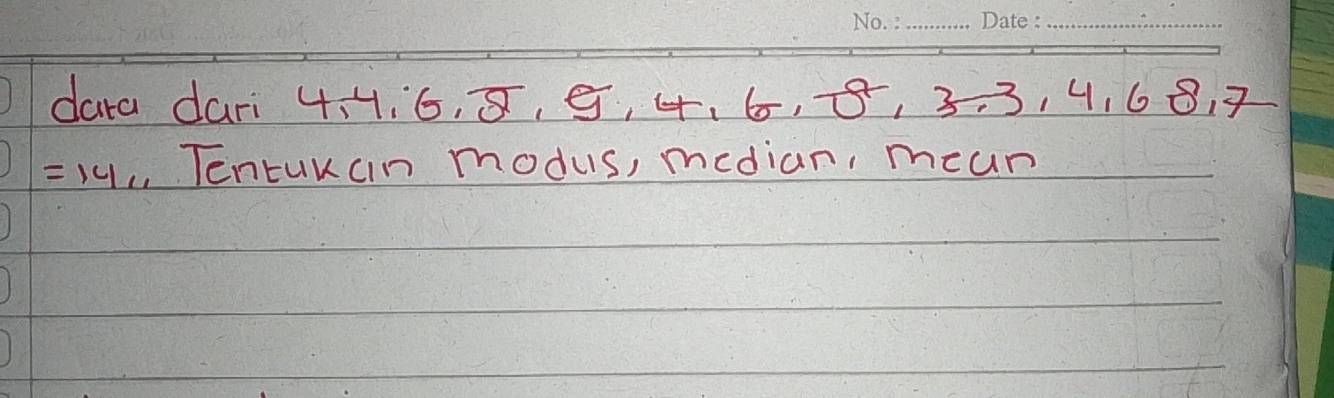 No. : ........... Date : ..............................
data dari 4,4,6,8,9,4,6,8,3,3,4,6 8,7
=14,, Tentukan modus, median, mean